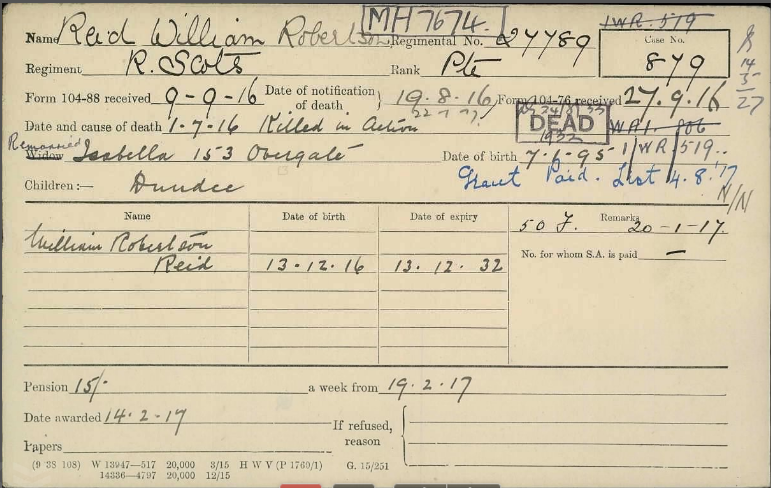 MH7674. 1WR. 519
Name Reid William Robertson Regimental No. 27789 Case No. 879
Regiment R. Scots Rank Pte
14
5
27
Form 104-88 received 9-9-16 Date of notification of death 19.8.16 Form 104-76 received 27.9.16
DEAD
1932
Date and cause of death 1-7-16 Killed in Action
Remarried
Widow Isabella 153 Overgate Date of birth 7.6.95 1/WR/519..
Children:— Dundee Grant Paid. List 4.8.'17
N/N
Name Date of birth Date of expiry 50 F. Remarks 20-1-17.
William Robertson
Reid 13.12.16 13.12.32 No. for whom S.A. is paid —
Pension 15/- a week from 19.2.17
Date awarded 14.2-17 If refused, reason
Papers
(9 38 108) W 13947—517 20,000 3/15 H W V (P 1760/1) G. 15/251
14336—4797 20,000 12/15